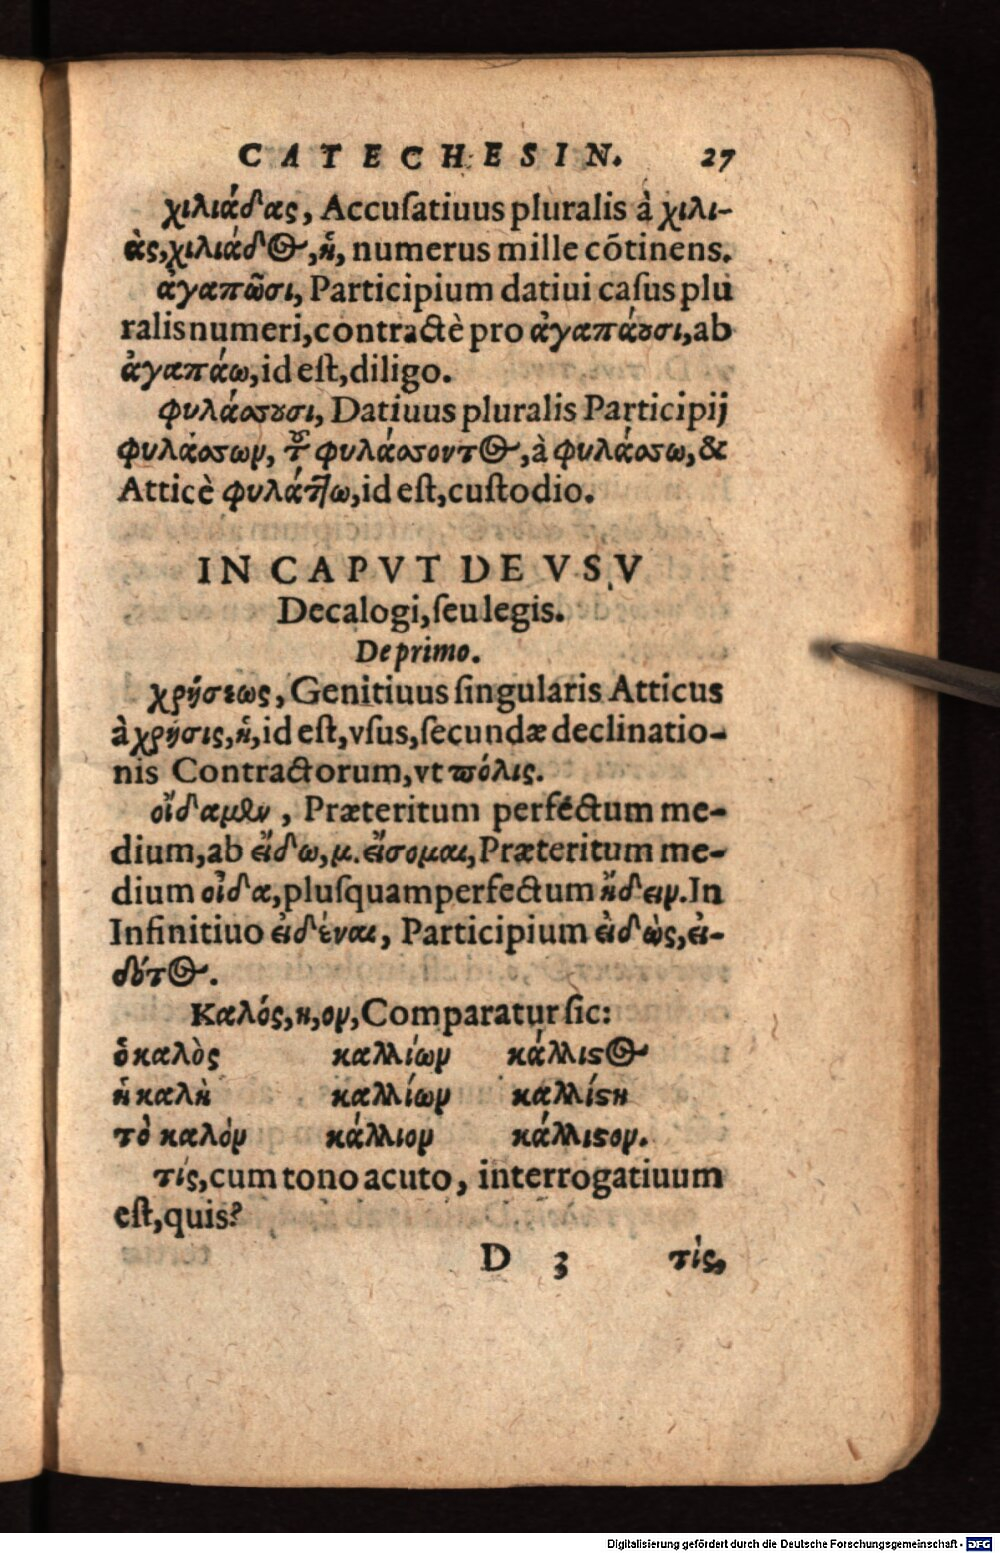 CATECHESIN. 27
χιλιάδας, Accuſatiuus pluralis à χιλι-
ὰς, χιλιάδος, ἡ, numerus mille cõtinens.
ἀγαπῶσι, Participium datiui caſus plu
ralis numeri, contractè pro ἀγαπάουσι, ab
ἀγαπάω, id eſt, diligo.
φυλάσσουσι, Datiuus pluralis Participij
φυλάσσων, τοῦ φυλάσσοντος, à φυλάσσω, &
Atticè φυλάττω, id eſt, cuſtodio.
IN CAPVT DE VSV
Decalogi, ſeu legis.
De primo.
χρήσεως, Genitiuus ſingularis Atticus
à χρῆσις, ἡ, id eſt, vſus, ſecundæ declinatio-
nis Contractorum, vt πόλις.
οἴδαμεν, Præteritum perfectum me-
dium, ab εἴδω, μ. εἴσομαι, Præteritum me-
dium οἶδα, pluſquamperfectum ᾔδειν. In
Infinitiuo εἰδέναι, Participium εἰδὼς, εἰ-
δότος.
Καλός, η, ον, Comparatur ſic:
ὁ καλὸς καλλίων κάλλιστος
ἡ καλὴ καλλίων καλλίστη
τὸ καλὸν κάλλιον κάλλιστον.
τίς, cum tono acuto, interrogatiuum
eſt, quis?
D 3 τὶς,
Digitalisierung gefördert durch die Deutsche Forschungsgemeinschaft - DFG